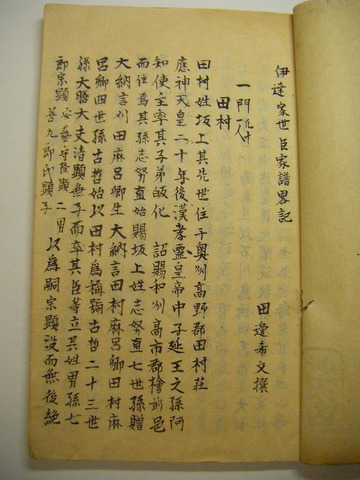 伊達家世臣家譜畧記
田邉希文撰
一門
田村
田村姓坂上其先世住于奥州高野郡田村荘
應神天皇二十年後漢孝靈皇帝中子延王之孫阿
知使主率其子弟皈化 詔賜和州高市郡檜前邑
而住焉其孫志努直始賜坂上姓志努直七世孫贈
大納言刈田麻呂卿生大納言田村麻呂卿田村麻
呂卿四世孫古哲始以田村為稱號古哲二十三世
孫大膳大夫清顕無子而卒其臣等立其姓男孫七
郎宗顕 安藝守隆顕二男 善九郎氏顕子 以為嗣宗顕没而無後絶